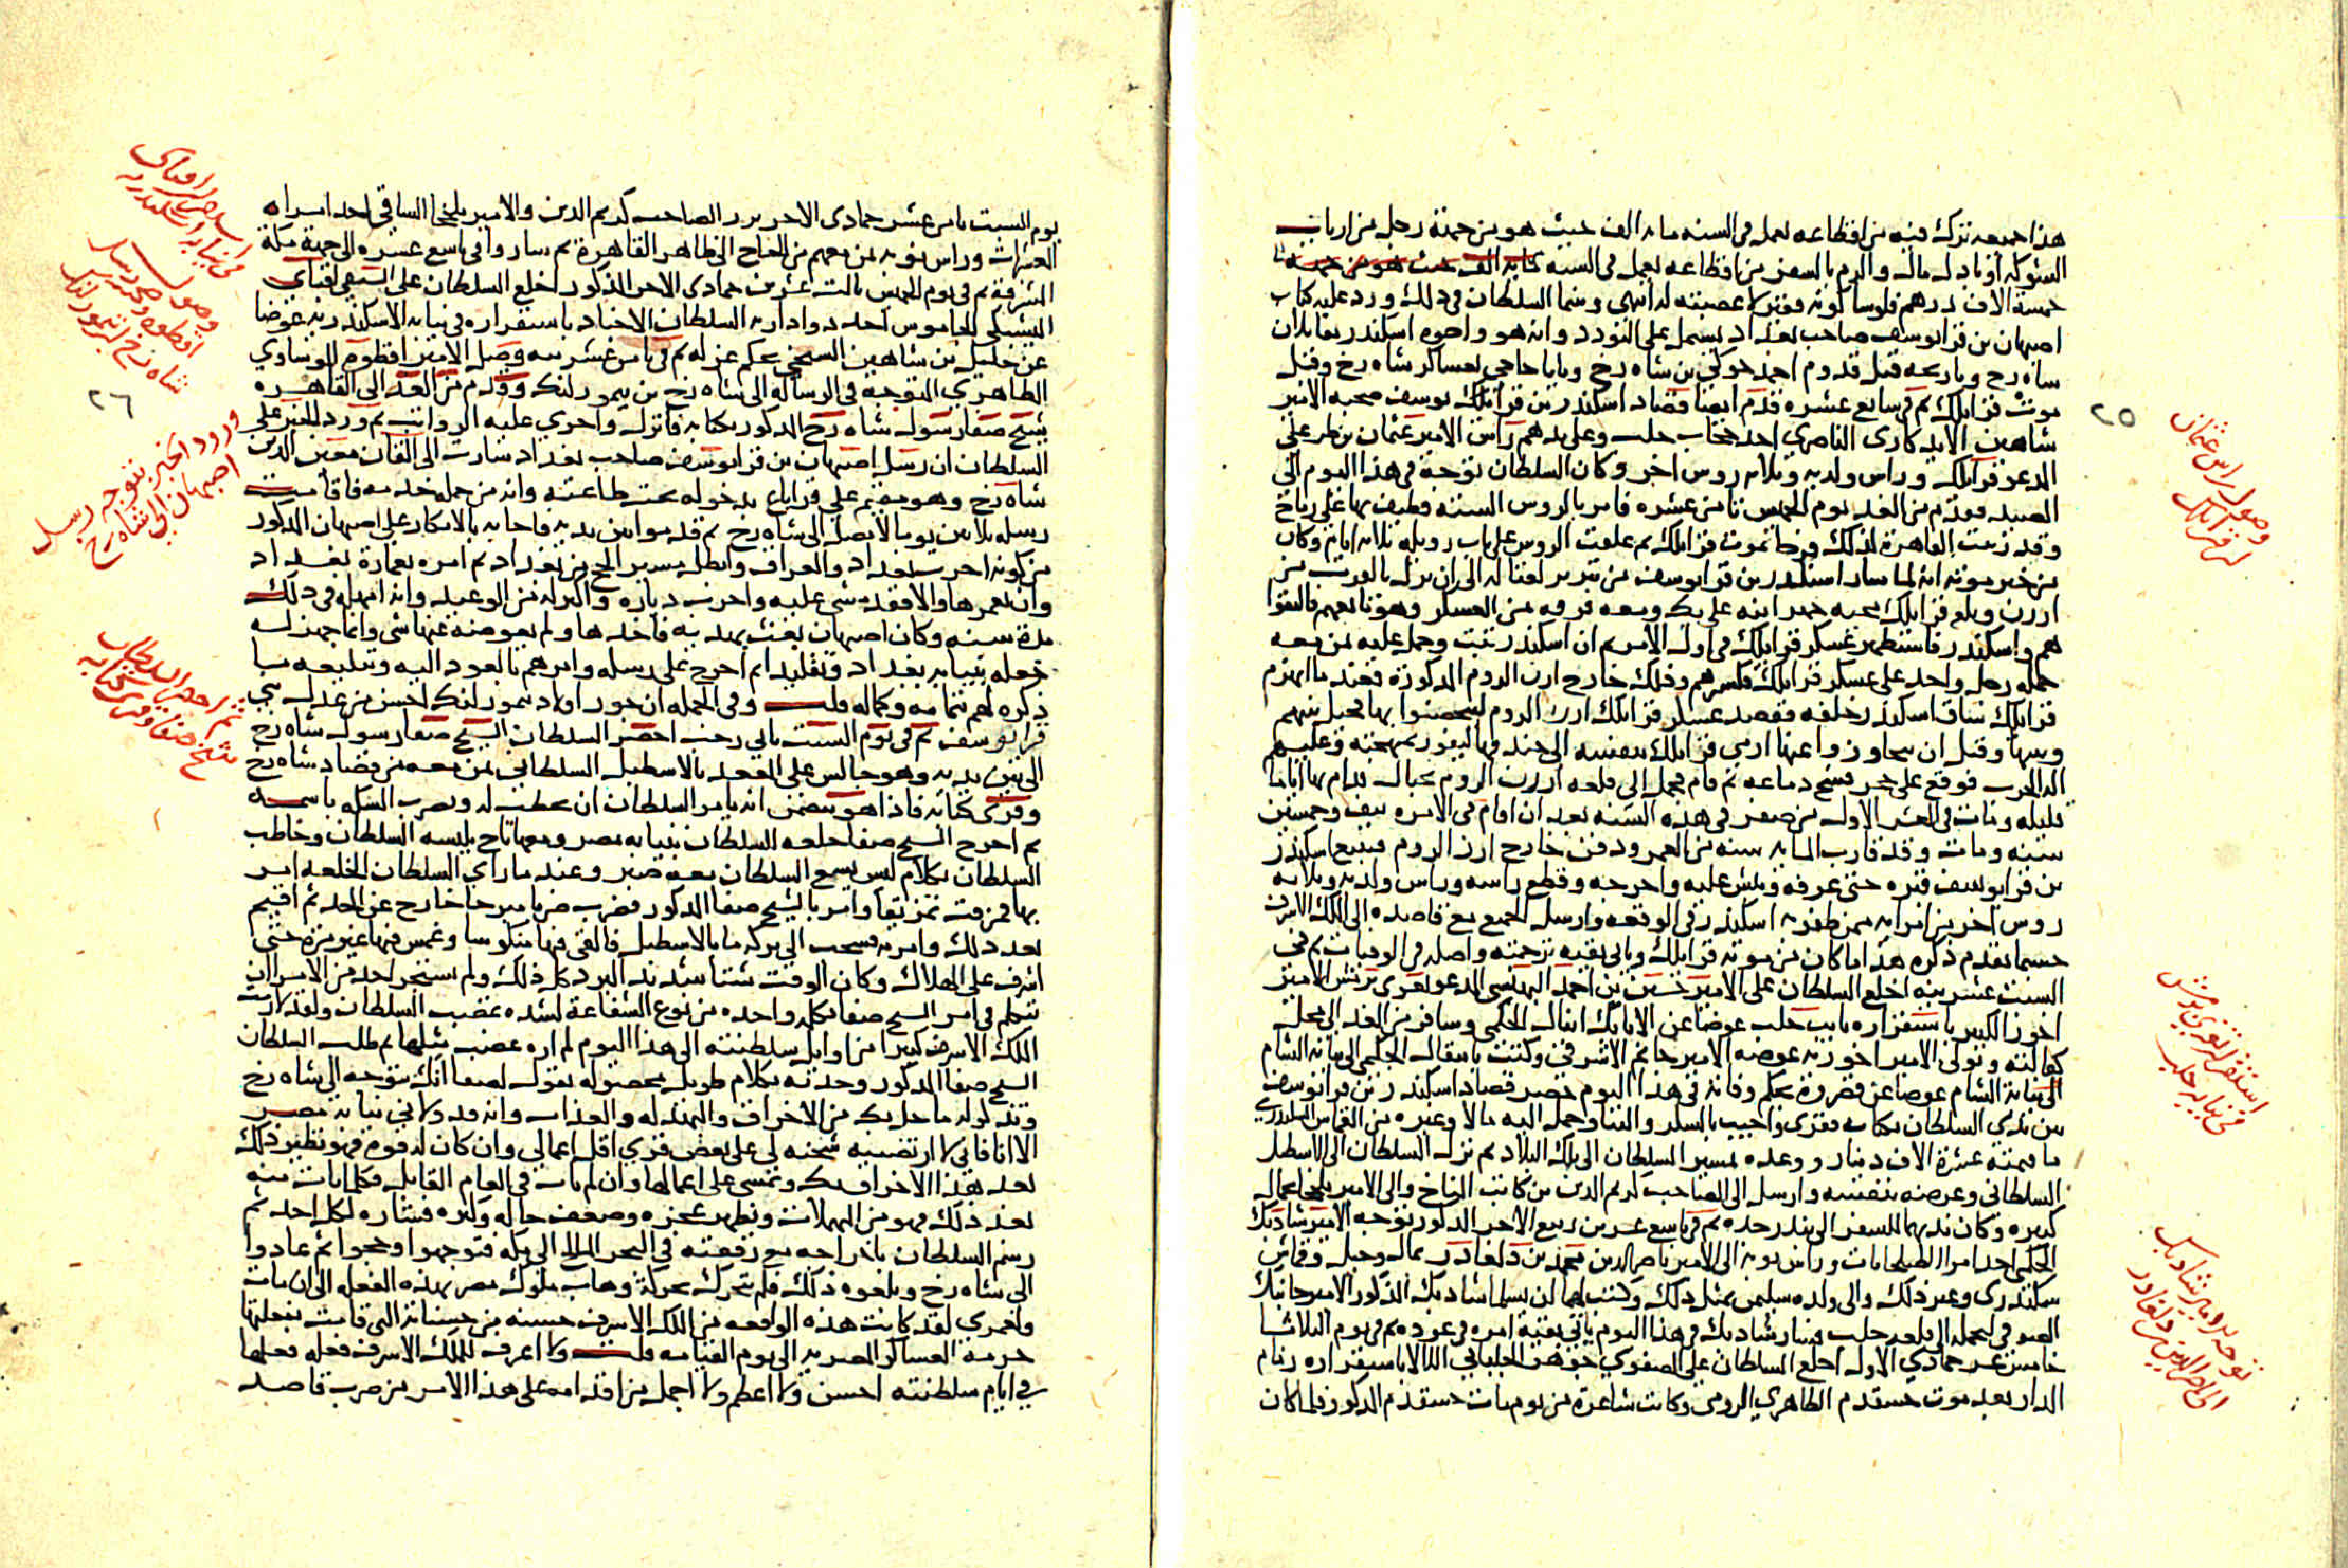 هذا جميعه نزلت فيه من اقطاعه لعمل في السنة مايه الف حيث هو من حملة رجل من ارباب
الشوكة او بادل مال والزم بالسفر من اقطاعه لعمل في السنه
خمسة الاف درهم فلوسا كونه فقير لا عصبته له انتهى وبينما السلطان في ذلك ورد عليه كتاب
اصبهان بن قرا يوسف صاحب بغداد يشتمل على التودد وانه هو واخوه اسكندر يقاتلان
شاه رخ وتاريخه قبل قدوم احمد جوكي بن شاه رخ وبابا حاجي بعساكر شاه رخ وقبل
موت قرايلك ثم في سابع عشره قدم ايضا قصاد اسكندر بن قرا يوسف صحبه الامير
شاهين الايدكاري الناصري احد حجاب حلب وعلى يدهم راس الامير عثمان بن طر علي
المدعو قرايلك وراس ولديه وثلاث روس اخر وكان السلطان توجه في هذا اليوم الى
الصيد فقدم من الغد يوم الخميس ثامن عشره فامر بالروس الستة فطيف بها على رماح
وقد زينت القاهرة لذلك فرحا بموت قرايلك ثم علقت الروس على باب زويله ثلاثه ايام وكان
من خبر موته انه لما سار اسكندر بن قرا يوسف من تبريز لقتاله الى ان نزل بالقرب من
ارزن وبلغ قرايلك مجيه جهز ابنه علي بك ومعه فرقه من العسكر وهو تابعهم فالتقوا
هم واسكندر فاستظهر عسكر قرايلك في اول الامر ثم ان اسكندر ثبت وحمل عليه بمن معه
حمله رجل واحد على عسكر قرايلك فكسرهم وذلك خارج ارزن الروم المذكورة فعند ما انهزم
قرايلك ساق اسكندر خلفه فقصد عسكر قرايلك ارزن الروم ليتحصنوا بها فحيل بينهم
وبينها وقبل ان يتجاوزوا عنها ارمى قرايلك بنفسه الى خندقها ليفوز بمهجته وعليه
اله الحرب فوقع على حجر فشج دماغه ثم قام فحمل الى قلعه ارزن الروم بحبال فدام بها اياما
قليله ومات في العشر الاول من صفر في هذه السنه بعد ان اقام في الامره نيف وخمسين
سنه ومات وقد قارب المايه سنه من العمر ودفن خارج ارزن الروم فتتبع اسكندر
بن قرا يوسف قبره حتى عرفه ونبش عليه واخرجه وقطع راسه وراس ولديه وثلاثه
روس اخر من امرايه ممن ظفر به اسكندر في الوقعه وارسل الجميع مع قاصده الى الملك الاشرف
حسبما تقدم ذكره هذا ما كان من موته قرايلك وياتي بقيه ترجمته واصله في الوفيات ثم في
السبت عشرينه اخلع السلطان على الامير حسين بن احمد البهنسي المدعو تغري برمش الامير
اخور الكبير باستقراره نايب حلب عوضا عن الاتابك اينال الجكمي وسافر من الغد الى محل
كفالته وتولى الامير اخوريه عوضه الامير جانم الاشرفي وكتب بانتقال الجكمي الى نيابة الشام
الى نيابة الشام عوضا عن قصروه بحكم وفاته في هذا اليوم حضر قصاد اسكندر بن قرا يوسف
بين يدي السلطان بكتابه فقري واجيب بالشكر والثنا وحمل اليه مالا وغيره من القماش السكندري
ما قيمته عشرة الاف دينار ووعده لمسير السلطان الى تلك البلاد ثم نزل السلطان الى الاسطبل
السلطاني وعرضه بنفسه وارسل الى الصاحب كريم الدين بن كاتب المناخ والى الامير يلخجا بمال
كبيره وكان ندبهما للسفر الى بندر جده ثم في تاسع عشرين ربيع الاخر المذكور توجه الامير شاد بك
الجكمي احد امرا الطبلخانات وراس نوبه الى الامير ناصر الدين محمد بن دلغادر بمال وخيل وقماش
سكندري وغير ذلك والى ولده سليمن بمثل ذلك وكتب لهما ان يسلما شاد بك المذكور الامير جانبك
الصوفي ليحمله الى قلعه حلب فسار شاد بك في هذا اليوم ياتي بقية امره في عوده ثم في يوم الثلاثا
خامس عشر جمادي الاولى اخلع السلطان على الصفوي جوهر الجلباني اللالا باستقراره زمام
الدار بعد موت خشقدم الظاهري الرومي وكانت شاغرة من يوم مات خشقدم المذكور فلما كان
وصول راس عثمان
قرايلك
٢٥
استقرار تغري برمش
في نيابه حلب
توجه الامير شاد بك
الى ناصر الدين دلغادر
يوم السبت ثامن عشر جمادى الاخر برز الصاحب كريم الدين والامير يلخجا الساقي احد امراه
العشرات وراس نوبه بمن معهم من الحاج الى ظاهر القاهرة ثم ساروا في تاسع عشره الى جهة مكة
المشرفة ثم في يوم الخميس ثالث عشرين جمادى الاخر المذكور اخلع السلطان على السيفي اقباي
اليشبكي الجاموس احد دواداريه السلطان الاجناد باستقراره في نيابه الاسكندريه عوضا
عن خليل بن شاهين الشيخي بحكم عزله ثم في ثامن عشرينه وصل الامير اقطوه الموساوي
الظاهري المتوجه في الرساله الى شاه رخ بن تيمور لنك وقدم من الغد الى القاهره
شيخ صفا رسول شاه رخ المذكور بكتابه فانزل واجري عليه الرواتب ثم ورد الخبر على
السلطان ان رسل اصبهان بن قرا يوسف صاحب بغداد سارت الى القان معين الدين
شاه رخ وهو مقيم على قراباغ بدخوله تحت طاعته وانه من جمله خدمه فاقامت
رسله ثلاثين يوما لا تصل الى شاه رخ ثم قدموا بين يديه فاجابه بالانكار على اصبهان المذكور
من كونه اخرب بغداد والعراق وابطل مسير الحج من بغداد ثم امره بعمارة بغداد
وان يعمرها والا فقد مشى عليه واخرب دياره واكثر له من الوعيد وانه امهله في ذلك
مدة سنه وكان اصبهان بعث بهديه فاخذها ولم يعوضه عنها شى وانما جهز له
خلعه بنيابه بغداد وتقليدا ثم اخرج على رسله وامرهم بالعود اليه وتبليغه ما
ذكره لهم بتمامه وكماله قلت وفي الجمله ان جور اولاد تيمور لنك احسن من عدل بني
قرا يوسف ثم في يوم السبت ثاني رجب احضر السلطان الشيخ صفا رسول شاه رخ
الى بين يديه وهو جالس على المقعد بالاسطبل السلطاني بمن معه من قصاد شاه رخ
وقرى كتابه فاذا هو يتضمن انه يامر السلطان ان يخطب له ويضرب السكه باسمه
ثم اخرج الشيخ صفا خلعه السلطان بنيابه مصر ومعها تاج يلبسه السلطان وخاطب
السلطان بكلام ليس يسع السلطان معه صبر وعند ما راى السلطان الخلعه امر
بها فمزقت تمزيقا وامر بالشيخ صفا المذكور فضرب ضربا مبرحا خارج عن الحد ثم اقيم
بعد ذلك وامر به فسحب الى بركه ما بالاسطبل فالقي فيها منكوسا وغمس فيها غير مرة حتى
اشرف على الهلاك وكان الوقت شتا شديد البرد كل ذلك ولم يستجر احد من الامرا ان
يتكلم في امر الشيخ صفا بكلمه واحده من نوع الشفاعة لشده غضب السلطان ولقد لازمت
الملك الاشرف كثيرا من اوايل سلطنته الى هذا اليوم لم اره غضب مثلها ثم طلب السلطان
الشيخ صفا المذكور وحدثه بكلام طويل محصوله يقول لصفا انك تتوجه الى شاه رخ
وتذكر له ما حل بك من الاخراق والبهدله والعذاب وانه قد ولاني نيابه مصر
الا انا فاني لا ارتضيه شحنه لي على بعض قري اقل اعمالي وان كان له قوه فهو يظهر ذلك
بعد هذا الاخراق بك ويمشي على اعمالها وان لم يات في العام القابل فكلما يات منه
بعد ذلك فهو من المهملات ويظهر عجزه وضعف حاله وكبره فشاره لكل احد ثم
رسم السلطان باخراجه مع رفقته في البحر المالح الى مكه فتوجهوا وحجوا ثم عادوا
الى شاه رخ وبلغوه ذلك فلم يتحرك بحركه وهاب ملوك مصر بهذه الفعله الى ان مات
ولعمري لقد كانت هذه الواقعه من الملك الاشرف حسنه من حسناته التي قامت بفعلتها
حرمة العساكر المصريه الى يوم القيامه قلت ولا اعرف للملك الاشرف فعله فعلها
في ايام سلطنته احسن ولا اعظم ولا اجمل من اقدامه على هذا الامر من ضرب قاصد
استقرار اقباي
في نيابه اسكندريه
وصول
اقطوه وصحبته رسل
شاه رخ بن تيمور لنك
٢٦
ورود الخبر بتوجه رسل
اصبهان الى شاه رخ
ثم احضر السلطان
شيخ صفا وقرى كتابه